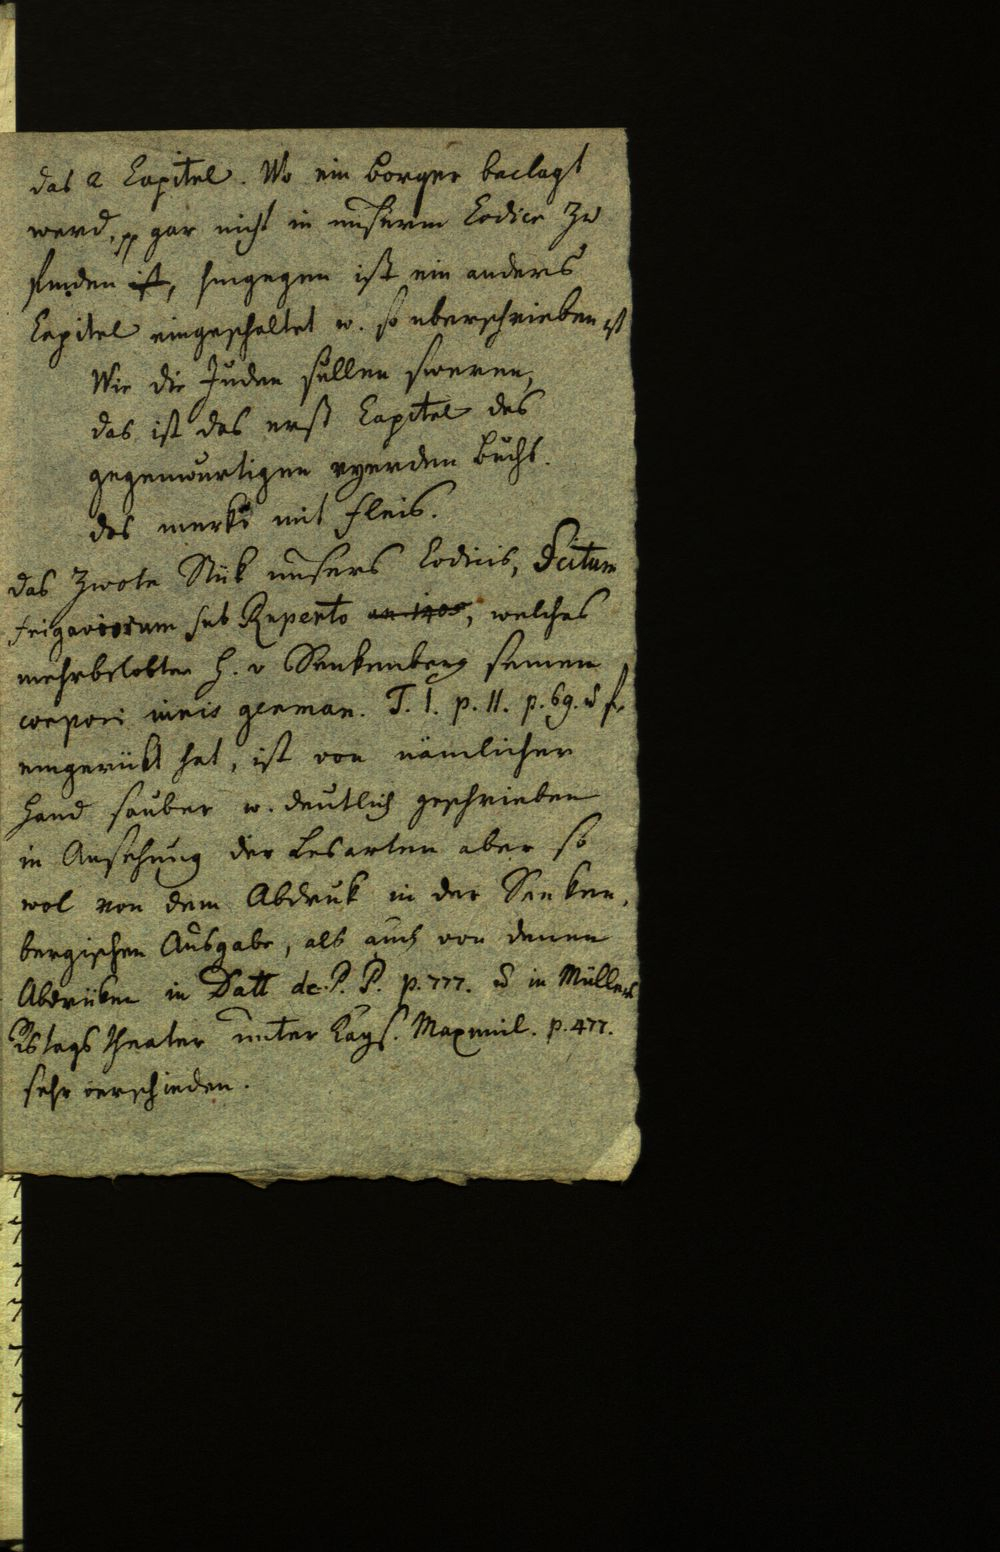 das 2 Capitel. Wo ein borger beclagt
werd, pp gar nicht in unserm Codice zu
finden ist, hingegen ist ein anders
Capitel eingeschaltet w. so uberschrieben ist
Wie die Juden sullen sweren,
das ist das erst Capitel des
gegenwurtigen vyerden buchs.
das merkt mit fleis.
das zwote Stük unsers Codicis, Scitum
frigaviorum sub Ruperto an. 1408, welches
mehrbelobter H. v Senkenberg seinem
corpori iuris german. T. I. p. II. p. 69. u f.
eingerükt hat, ist von nämlicher
Hand sauber u. deutlich geschrieben
in Ansehung der Lesarten aber so
wol von dem Abdruk in der Senken,
bergischen Ausgabe, als auch von denen
Abdrüken in Datt de P. P. p. 777. u in Müllers
Rstags theater unter Kays. Maximil. p. 477.
sehr verschieden.